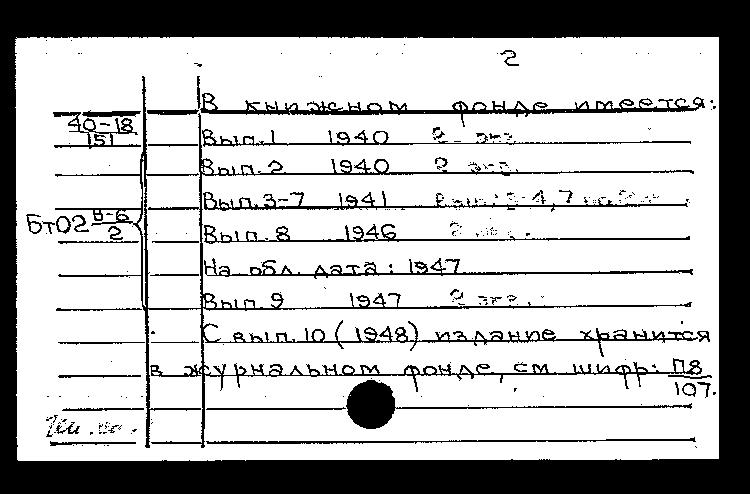 2
В книжном фонде имеется:
40-18
151
Вып.1 1940 2 экз.
Вып.2 1940 2 экз.
Вып.3-7 1941
Бт02 В-6
2
Вып.8 1946 2 экз.
На обл. дата: 1947
Вып.9 1947 2 экз.
С вып.10 (1948) издание хранится
в журнальном фонде, см. шифр: П8
107.